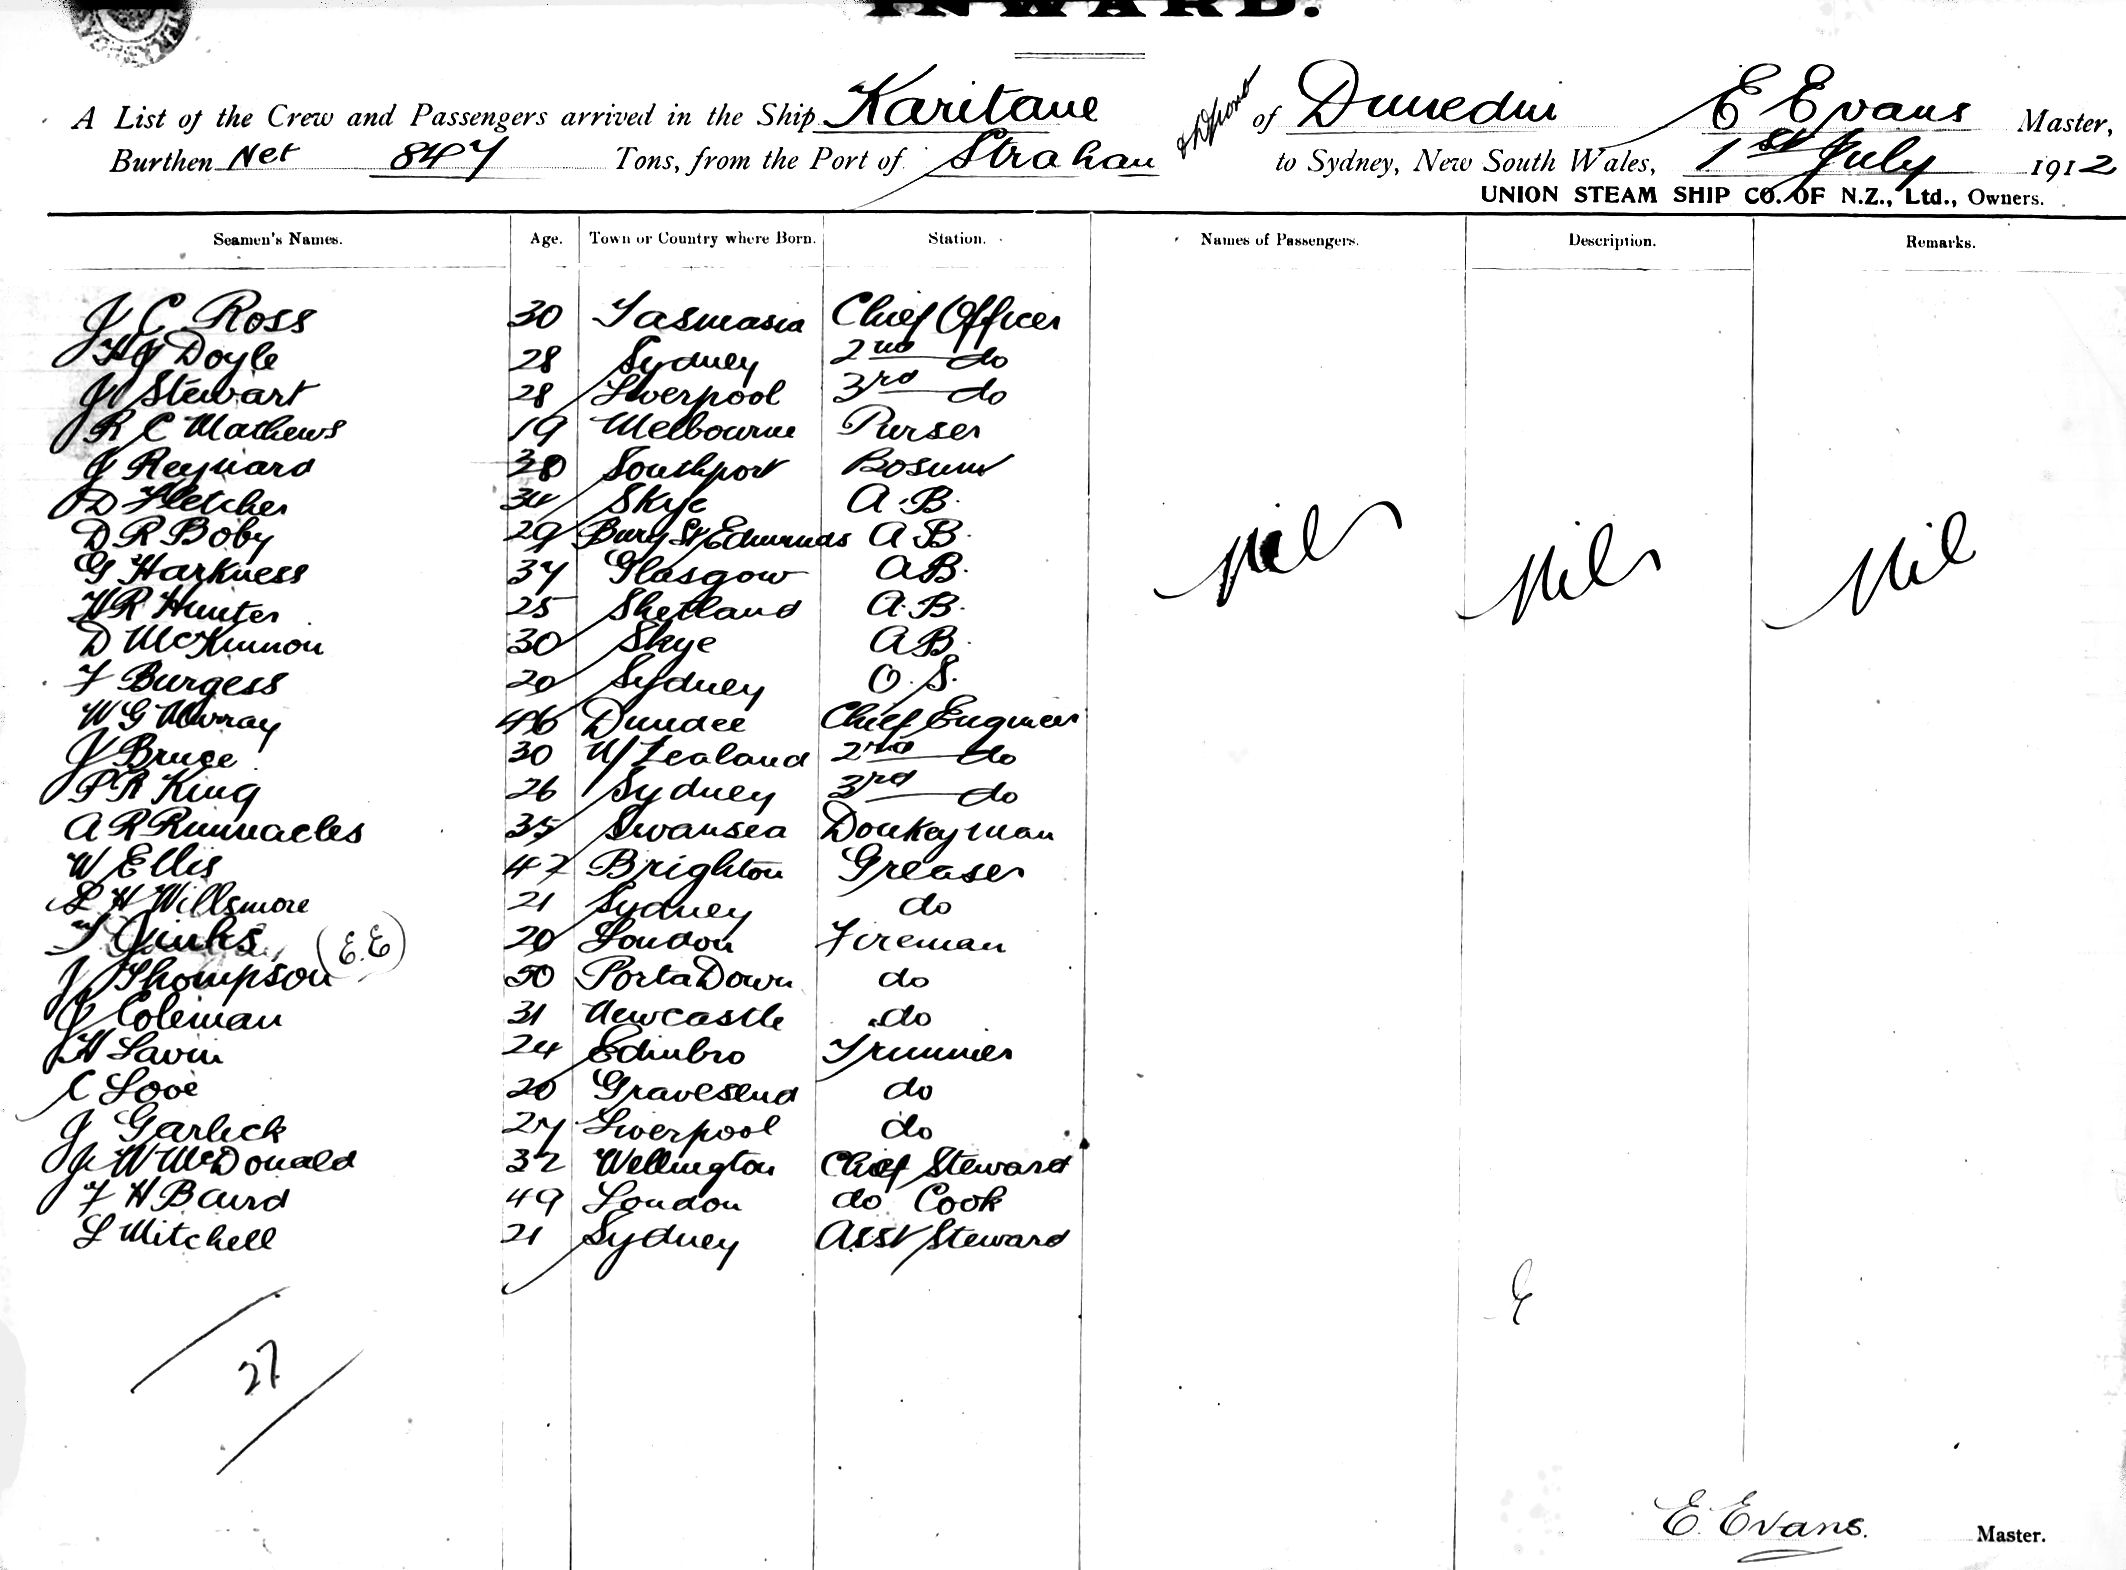 INWARD.
A List of the Crew and Passengers arrived in the Ship Karitane of Dunedin E Evans Master,
Burthen Net 847 Tons, from the Port of Strahan to Sydney, New South Wales, 1st July 1912
UNION STEAM SHIP CO. OF N.Z., Ltd., Owners.
Seamen's Names. Age. Town or Country where Born. Station. Names of Passengers. Description. Remarks.
J C Ross 30 Tasmania Chief Officer
H J Doyle 28 Sydney 2nd do
J Stewart 28 Liverpool 3rd do
R C Mathews 19 Melbourne Purser
J Reynard Southport Bosun
D Fletcher 34 Skye A.B.
D R Boby 29 Bury St Edmunds A B.
G Harkness 37 Glasgow A B.
W R Hunter 25 Shetland A.B.
D McKinnon 30 Skye A B.
Nil Nil Nil
F Burgess 20 Sydney O.S.
W G Murray 46 Dundee Chief Engineer
J Bruce 30 N/Zealand 2nd do
P R King 26 Sydney 3rd do
A R Runnacles 35 Swansea Donkeyman
W Ellis 47 Brighton Greaser
L H Willsmore 21 Sydney do
T Jinks (E.E) 20 London Fireman
J Thompson 50 PortaDown do
J Coleman 31 Newcastle do
H Lavin 24 Edinbro Trimmer
C Love 20 Gravesend do
J Garlick 27 Liverpool do
J W McDonald 32 Wellington Chief Steward
F H Baird 49 London do Cook
L Mitchell 21 Sydney Asst Steward
27
E. Evans. Master.